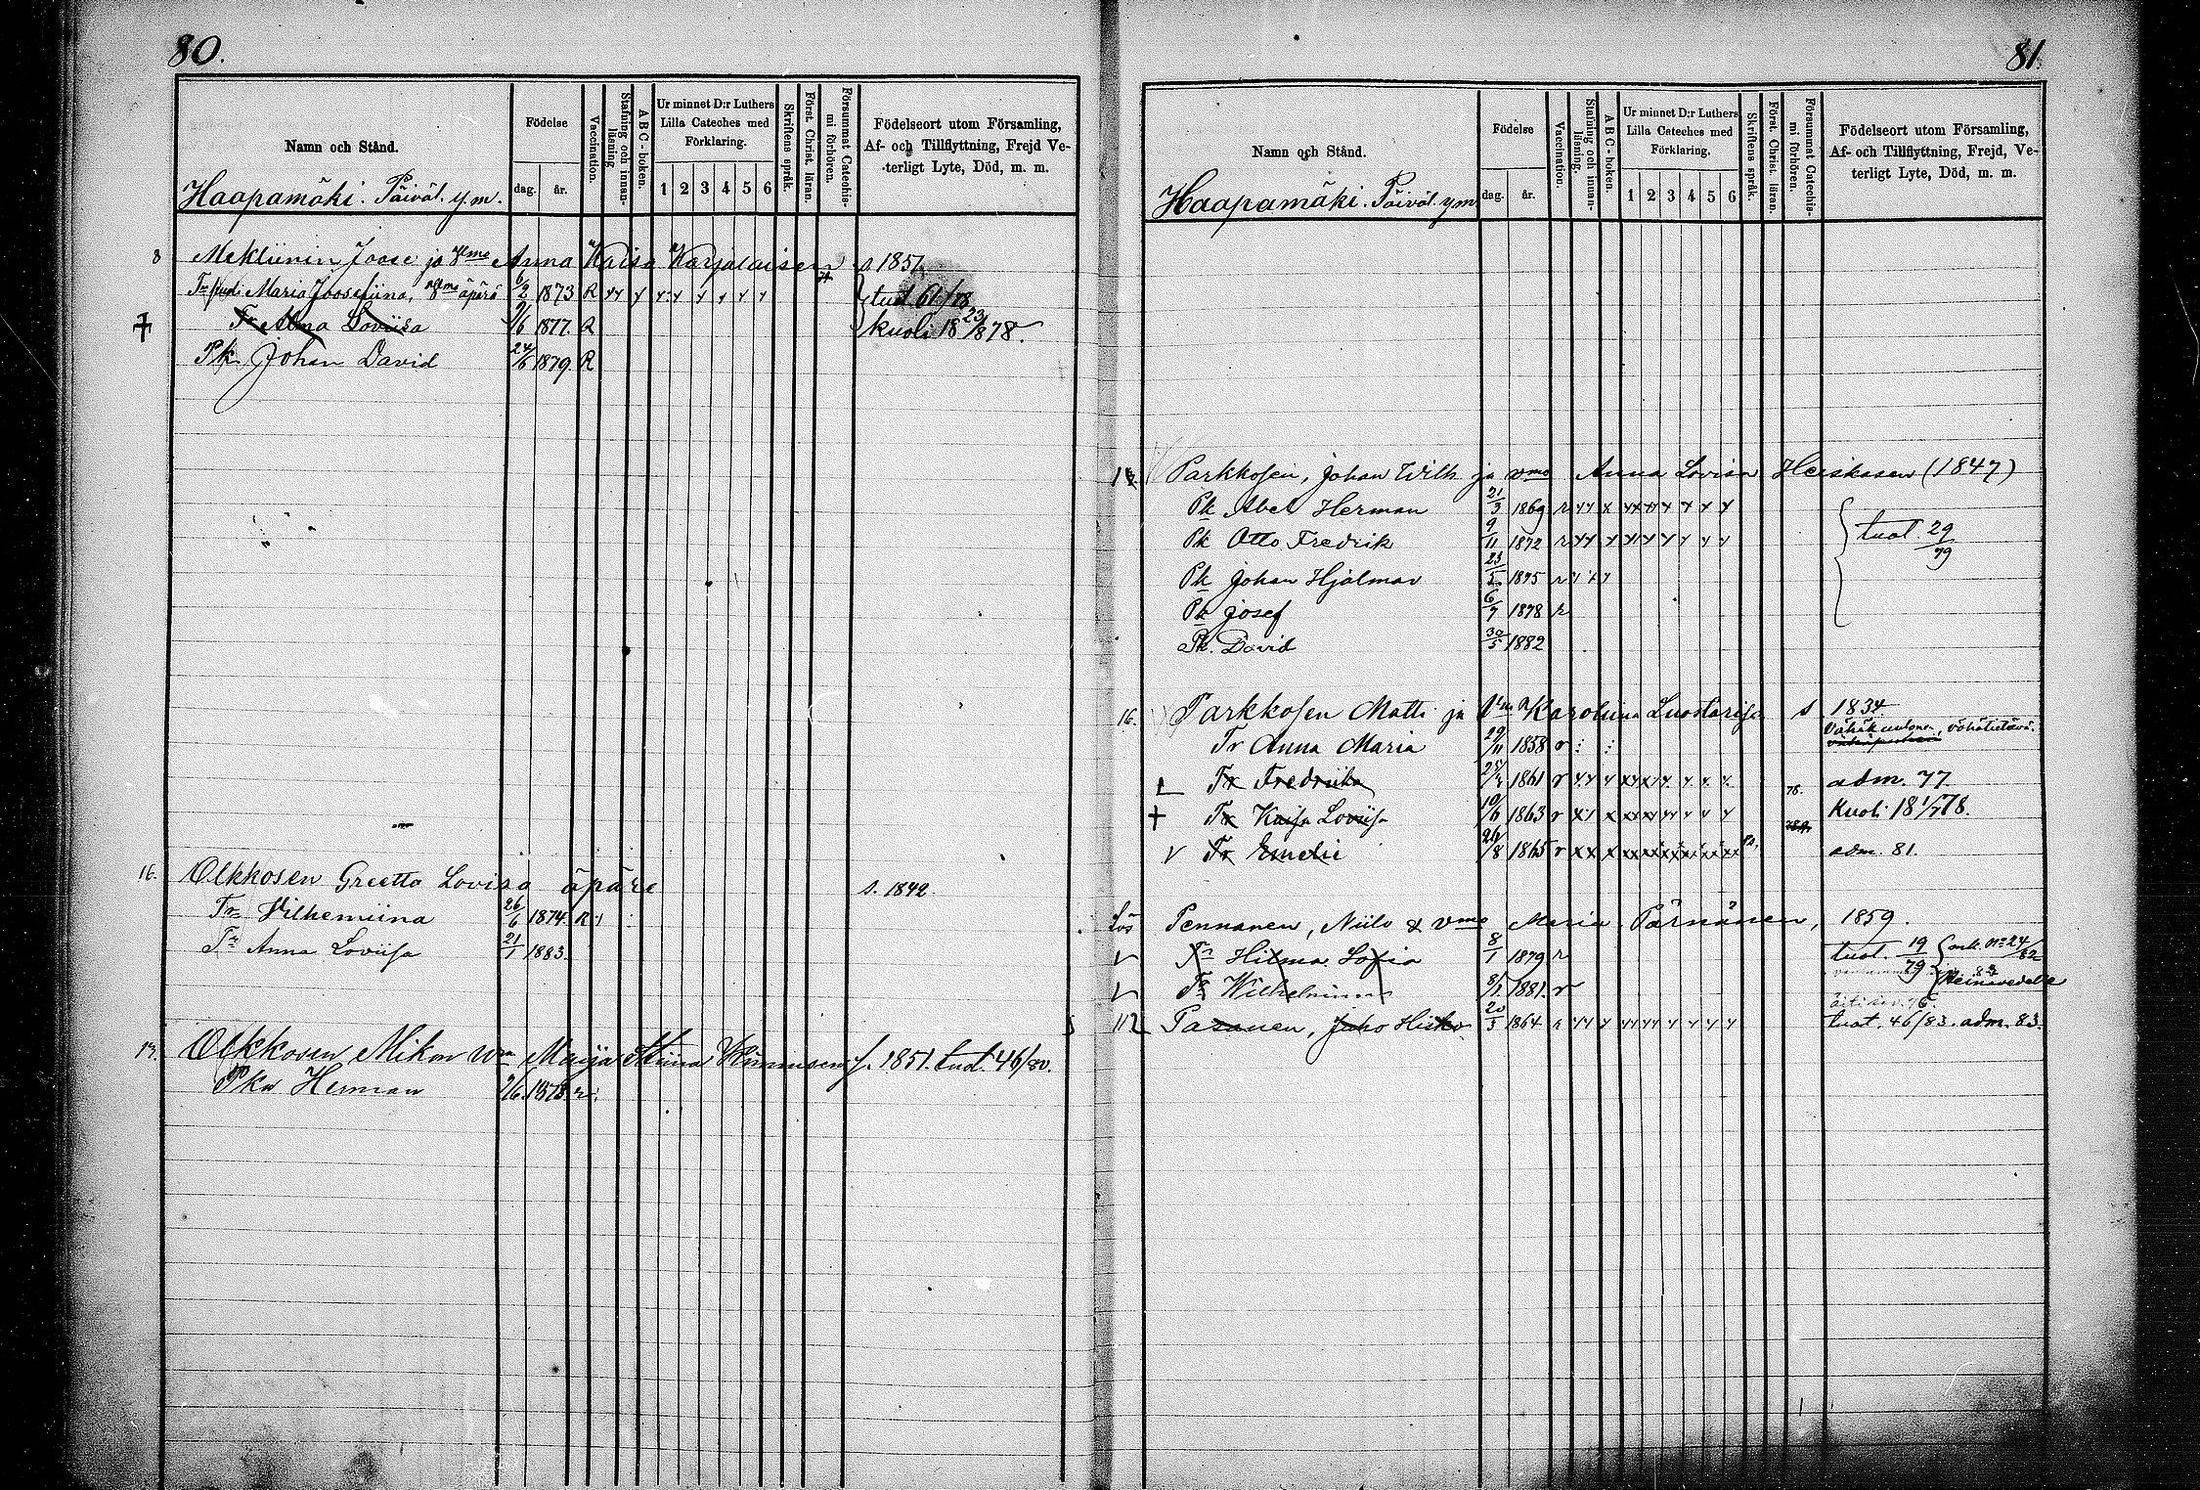 80.
Namn och Stånd.
Födelse
dag. år.
Vaccination.
Stafning och innanläsning
ABC-boken.
Ur minnet D:r Luthers Lilla Cateches med Förklaring.
1 2 3 4 5 6
Skriftens språk.
Först. Christ. läran.
Försummat Catechismi förhören.
Födelseort utom Församling,
Af- och Tillflyttning, Frejd Ve-
terligt Lyte, Död, m. m.
Haapamäki. Päiväl. y.m.
8 Anna Kaisa Karjalaisen s 1851
Maria Joosefiina, äpärä 6/2 1873 R
Tr Alma Loviisa 1877. R kuoli 18 23/ 878.
Pk Johan David 24/6 1879. R
16. Olkkosen Greetta Lovisa äpäre s. 1842
Tr Vilhemiina 26/6 1874. R
Tr Anna Loviisa 21/1 1883.
Olkkosen Mikon Maija Stiina 1851. tud. 46/80.
Herman 1878. r
81.
Namn och Stånd.
Födelse
dag. år.
Vaccination.
Stafning och innanläsning.
ABC-boken.
Ur minnet D:r Luthers Lilla Cateches med Förklaring.
1 2 3 4 5 6
Skriftens språk.
Först. Christ. läran.
Försummat Catechismi förhören.
Födelseort utom Församling,
Af- och Tillflyttning, Frejd, Ve-
terligt Lyte, Död, m. m.
Haapamäki. Päiväl. y m
Parkkosen, Johan Wilh ja vmo Anna Lovisa Heiskasen (1847)
Pk Abel Herman 21/3 1869 r
Pk Otto Fredrik 9/11 1872 r tuot. 29/79
Pk Johan Hjalmar 23/5 1875 r
Pk Josef 6/7 1878 r
Pk. David 30/5 1882
16. Parkkosen Matti ja Karoliina s 1834
Tr Anna Maria 29/11 1858 r
Tr Fredrika 1861 r adm. 77.
+ Tr Kaisa Loviisa 10/6 1863 r 78. Kuoli 18 1/7 78.
V Tr Emelie 26/8 1865 r adm. 81.
Lös Pennanen, Niilo & vmo Maria Pärnänen, 1859.
V Tr Hilma Sofia 8/1 1879 r tuot. 19/79 24/82
V Tr Wilhelmina 1881. r Heinävedelle
112 Pasanen, Juho Hisko 20/3 1864 r tuot. 46/83. adm. 83.